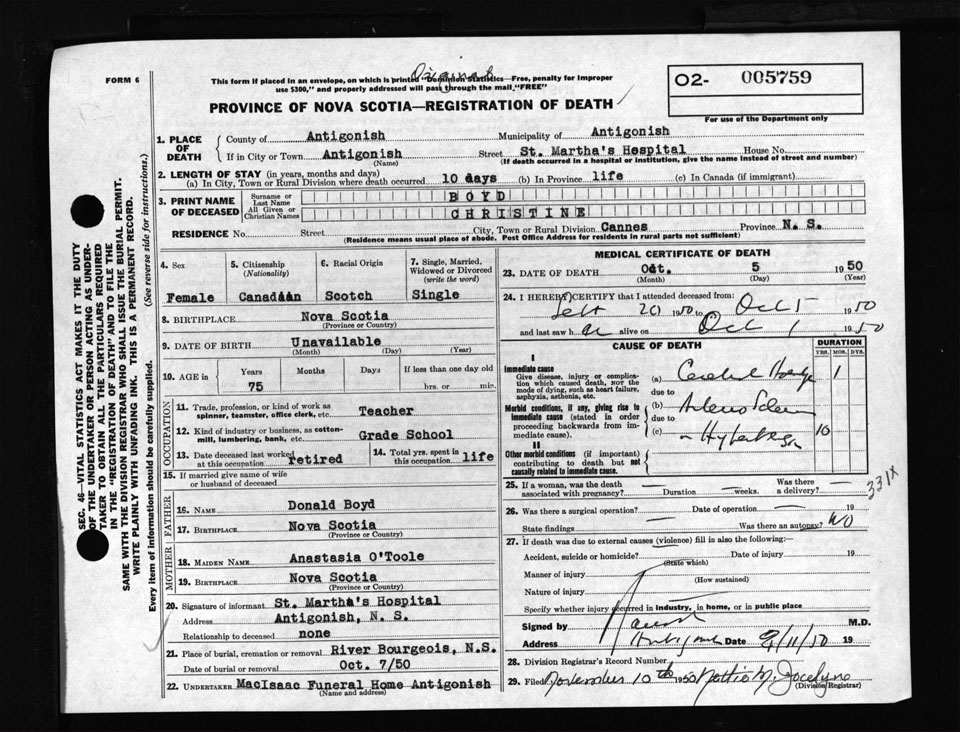 FORM 6
Original
This form if placed in an envelope, on which is printed "Dominion Statistics—Free, penalty for improper
use $300," and properly addressed will pass through the mail, "FREE"
O2- 005759
For use of the Department only
PROVINCE OF NOVA SCOTIA—REGISTRATION OF DEATH
1. PLACE OF DEATH
County of Antigonish Municipality of Antigonish
If in City or Town Antigonish Street St. Martha's Hospital House No.
(Name) (If death occurred in a hospital or institution, give the name instead of street and number)
2. LENGTH OF STAY (in years, months and days)
(a) In City, Town or Rural Division where death occurred 10 days (b) In Province life (c) In Canada (if immigrant)
3. PRINT NAME OF DECEASED
Surname or Last Name BOYD
All Given or Christian Names CHRISTINE
RESIDENCE No. Street City, Town or Rural Division Cannes Province N. S.
(Residence means usual place of abode. Post Office Address for residents in rural parts not sufficient)
4. Sex Female
5. Citizenship (Nationality) Canadian
6. Racial Origin Scotch
7. Single, Married, Widowed or Divorced (write the word) Single
8. BIRTHPLACE Nova Scotia
(Province or Country)
9. DATE OF BIRTH Unavailable
(Month) (Day) (Year)
10. AGE in Years 75 Months Days If less than one day old hrs. or min.
OCCUPATION
11. Trade, profession, or kind of work as spinner, teamster, office clerk, etc. Teacher
12. Kind of industry or business, as cotton-mill, lumbering, bank, etc. Grade School
13. Date deceased last worked at this occupation retired
14. Total yrs. spent in this occupation life
15. If married give name of wife or husband of deceased
FATHER
16. NAME Donald Boyd
17. BIRTHPLACE Nova Scotia
(Province or Country)
MOTHER
18. MAIDEN NAME Anastasia O'Toole
19. BIRTHPLACE Nova Scotia
(Province or Country)
20. Signature of informant St. Martha's Hospital
Address Antigonish, N. S.
Relationship to deceased none
21. Place of burial, cremation or removal River Bourgeois, N.S.
Date of burial or removal Oct. 7/50
22. UNDERTAKER MacIsaac Funeral Home Antigonish
(Name and address)
MEDICAL CERTIFICATE OF DEATH
23. DATE OF DEATH Oct. 5 1950
(Month) (Day) (Year)
24. I HEREBY CERTIFY that I attended deceased from:
Sept 20 1950 to Oct 5 1950
and last saw h alive on Oct 1950
CAUSE OF DEATH
DURATION
YRS. MOS. DYS.
I
Immediate cause
Give disease, injury or complication which caused death, NOT the mode of dying, such as heart failure, asphyxia, asthenia, etc.
(a) 1
due to
Morbid conditions, if any, giving rise to immediate cause (stated in order proceeding backwards from immediate cause).
(b)
due to
(c) 10
II
Other morbid conditions (if important) contributing to death but not causally related to immediate cause.
25. If a woman, was the death associated with pregnancy? — Duration — weeks. Was there a delivery? —
331X
26. Was there a surgical operation? — Date of operation — 19
State findings — Was there an autopsy? No
27. If death was due to external causes (violence) fill in also the following:—
Accident, suicide or homicide? Date of injury 19
(State which)
Manner of injury
(How sustained)
Nature of injury
Specify whether injury occurred in industry, in home, or in public place
Signed by M.D.
Address Antigonish Date 9/11/50 19
28. Division Registrar's Record Number
29. Filed November 10th 1950 Mattie M. Jocelyn
(Division Registrar)
SEC. 46—VITAL STATISTICS ACT MAKES IT THE DUTY
OF THE UNDERTAKER OR PERSON ACTING AS UNDER-
TAKER TO OBTAIN ALL THE PARTICULARS REQUIRED
IN THE "REGISTRATION OF DEATH" AND TO FILE THE
SAME WITH THE DIVISION REGISTRAR WHO SHALL ISSUE THE BURIAL PERMIT.
WRITE PLAINLY WITH UNFADING INK. THIS IS A PERMANENT RECORD.
Every item of information should be carefully supplied. (See reverse side for instructions.)